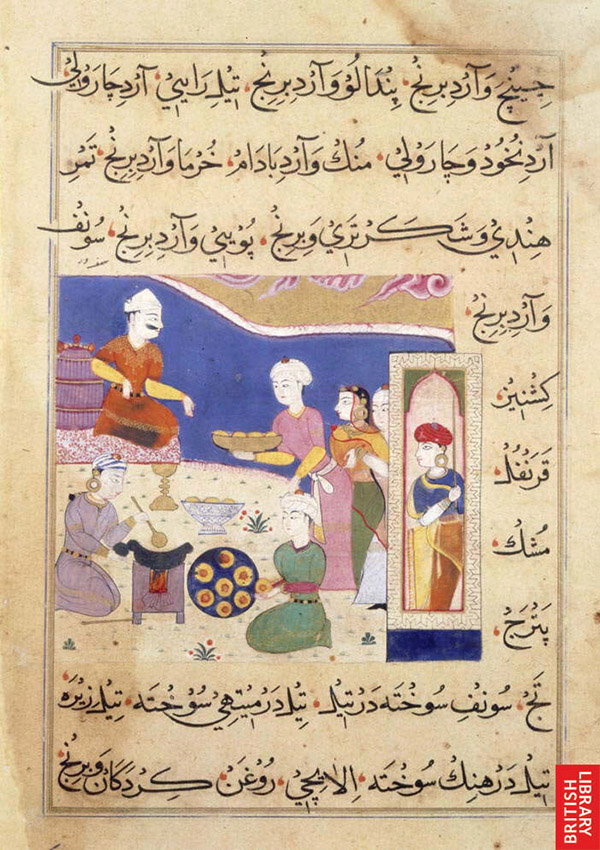 چینچ وآرد برنج، پندالو وآرد برنج، تیل رایی، آرد چارولی
آرد نخود وچارولی، منک وآرد بادام، خرما وآرد برنج، تمر
هندی وشکر تری وبرنج، پویی وآرد برنج، سونف
وآرد برنج
کشنیز
قرنفل
مشک
پترج
تج، سونف سوخته در تیل، تیل در میتهی سوخته، تیل زیره
تیل در هنک سوخته، الایچی، روغن کردکان وبرنج
BRITISH
LIBRARY